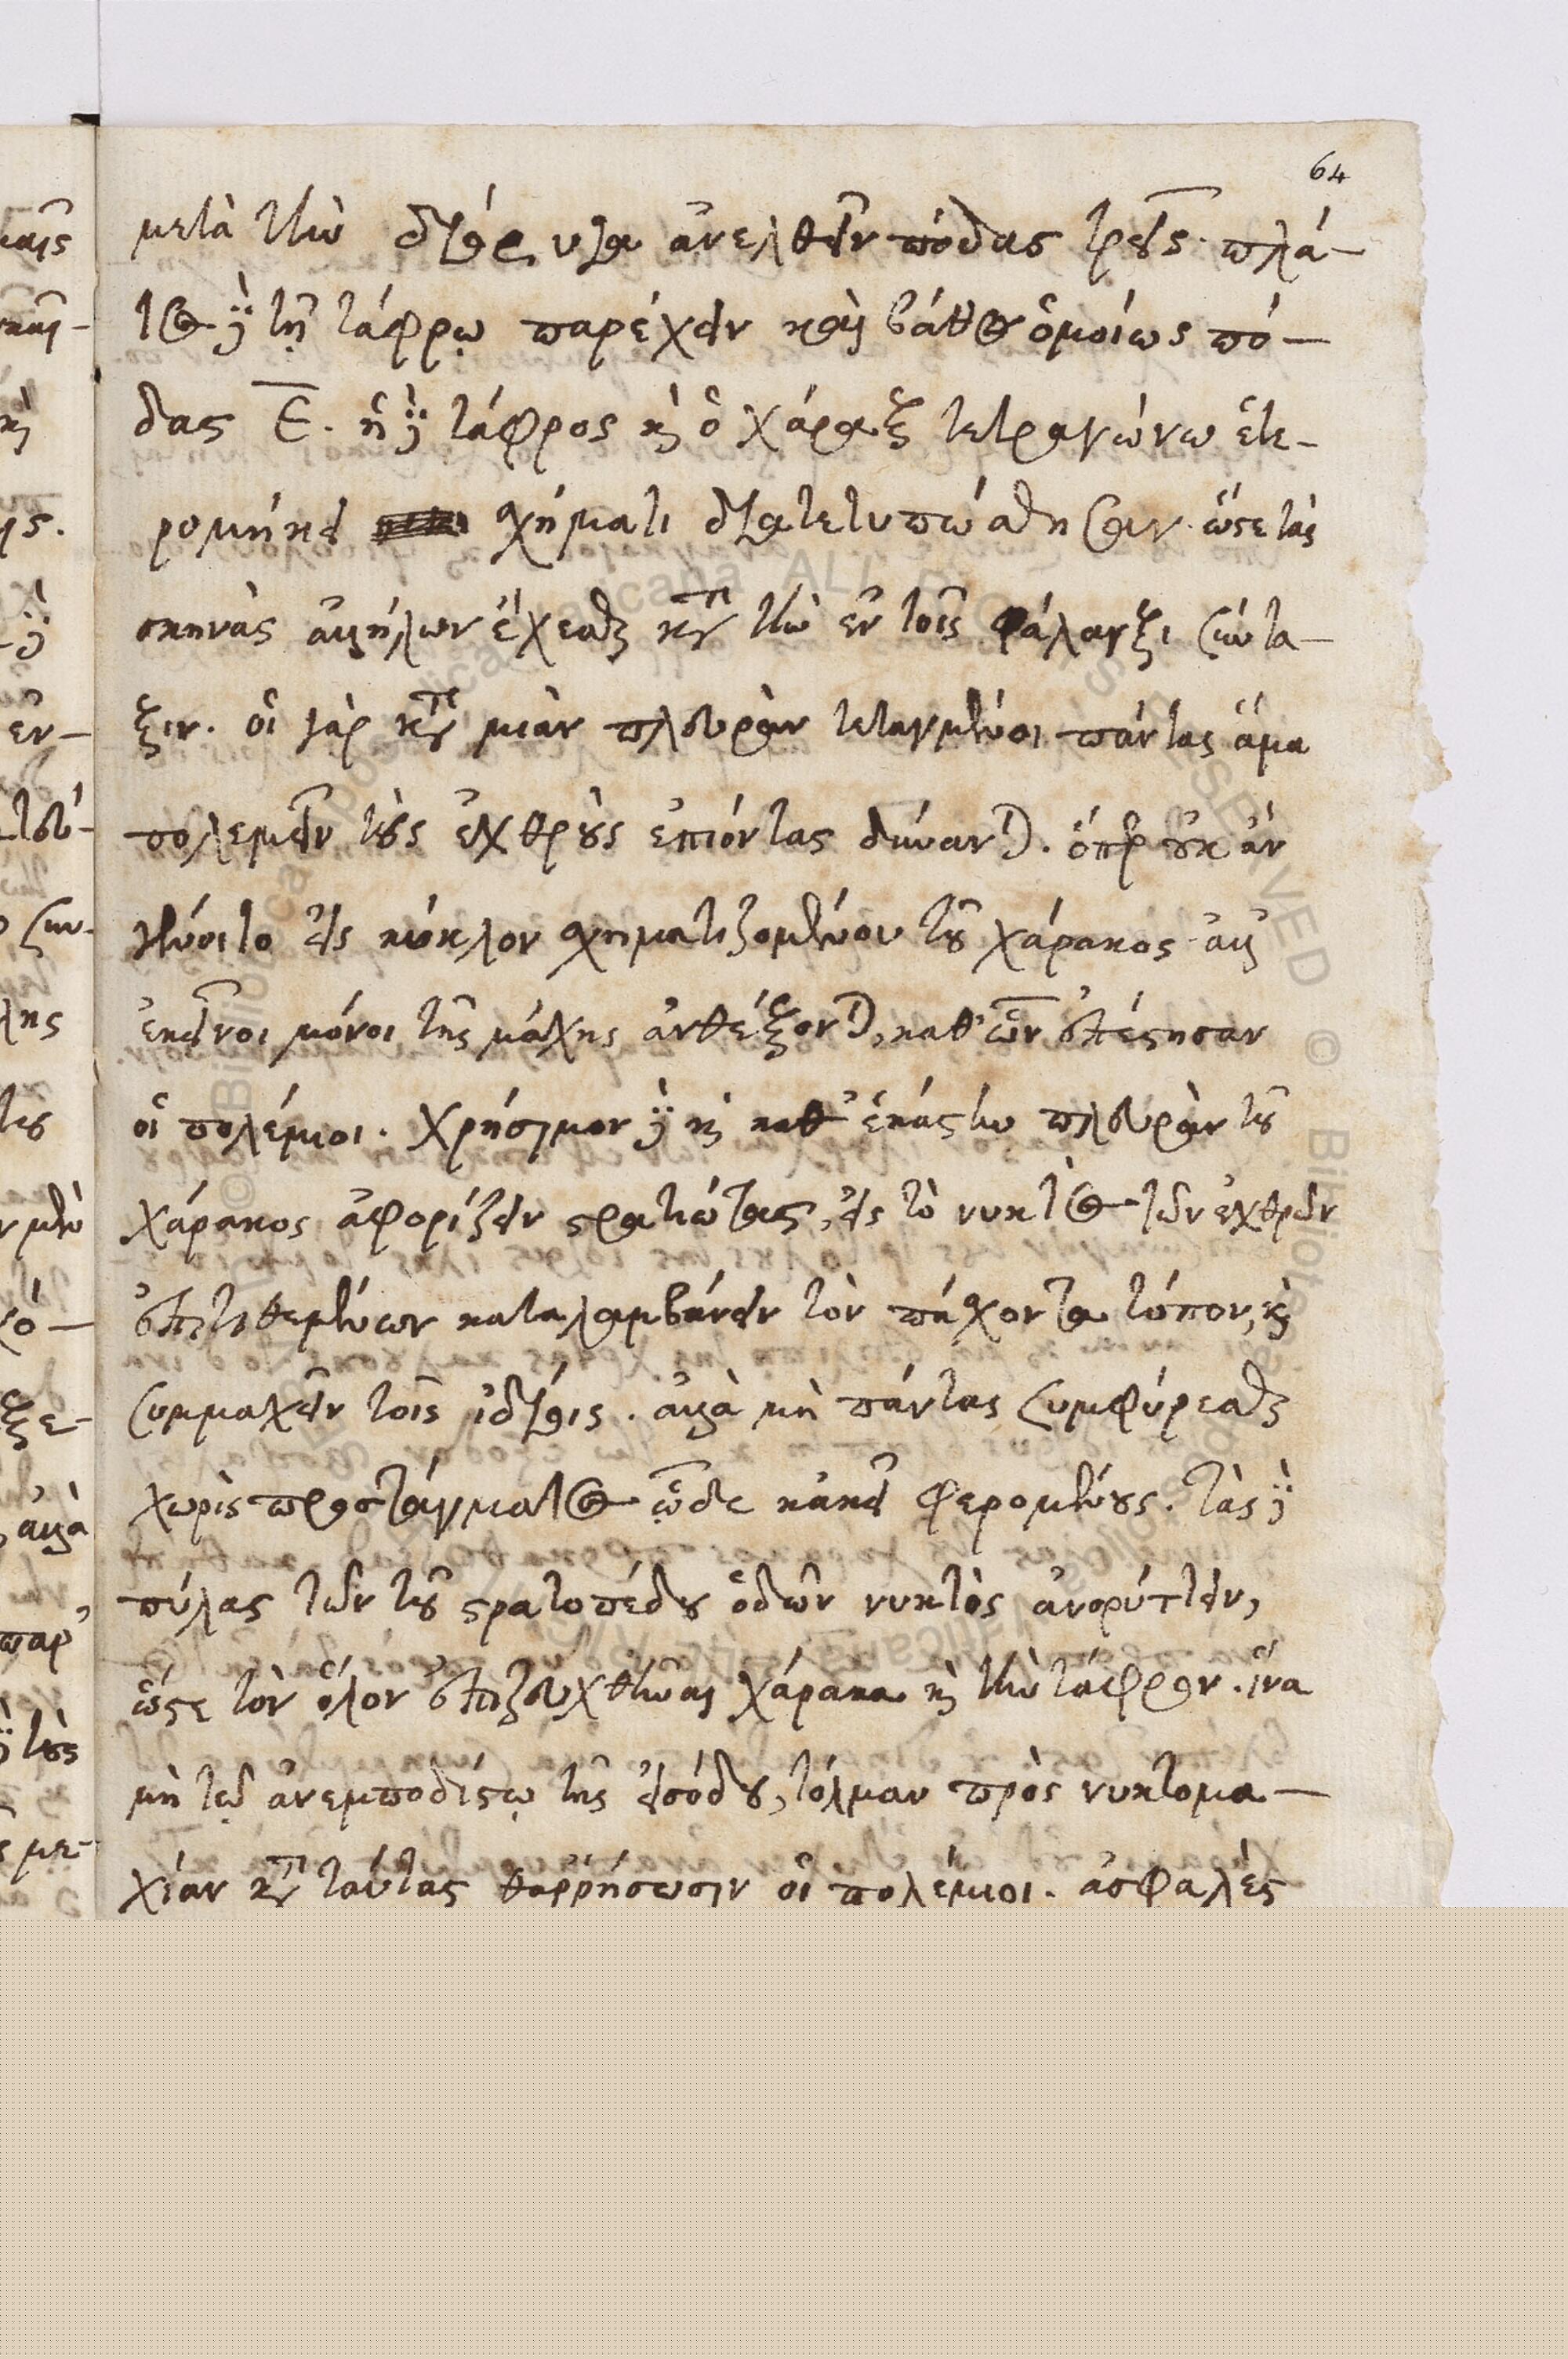 64
μετὰ τὴν διόρυγα ἀνελθεῖν πόδας τρεῖς· πλά-
τος δὲ τῇ τάφρῳ παρέχειν καὶ βάθος ὁμοίως πό-
δας ε̅. ἡ δὲ τάφρος καὶ ὁ χάραξ τετραγώνω ἑτε-
ρομήκει σχήματι διατετυπώσθησαν. ὥστε τὰς
σκηνὰς ἀλλήλων ἔχεσθαι κατὰ τὴν ἐν τοῖς φάλαγξι σύντα-
ξιν. οἱ γὰρ κατὰ μιὰν πλευρὰν τεταγμένοι πάντας ἅμα
πολεμεῖν τοὺς ἐχθροὺς ἐπιόντας δύνανται. ὅπερ οὐκ ἂν
γένοιτο εἰς κύκλον σχηματιζομένου τοῦ χάρακος· ἀλλ'
ἐκεῖνοι μόνοι τῆς μάχης ἀνθέξονται, καθ' ὧν ἐπέστησαν
οἱ πολέμιοι. χρήσιμον δὲ καὶ καθ' ἑκάστην πλευρὰν τοῦ
χάρακος ἀφορίζειν στρατιώτας, εἰς τὸ νυκτὸς τῶν ἐχθρῶν
ἐπιτιθεμένων καταλαμβάνειν τὸν πάσχοντα τόπον, καὶ
συμμαχεῖν τοῖς ἰδίοις. ἀλλὰ μὴ πάντας συμφύρεσθαι
χωρὶς προστάγματος ὧδε κἀκεῖ φερομένους. τὰς δὲ
πύλας τῶν τοῦ στρατοπέδου ὁδῶν νυκτὸς ἀνορύττειν,
ὥστε τὸν ὅλον ἐπιζευχθῆναι χάρακα καὶ τὴν τάφρον. ἵνα
μὴ τῷ ἀνεμποδίστῳ τῆς εἰσόδου, τόλμαν πρὸς νυκτομα-
χίαν κατὰ ταύτας θαῤῥήσωσιν οἱ πολέμιοι. ἀσφαλὲς